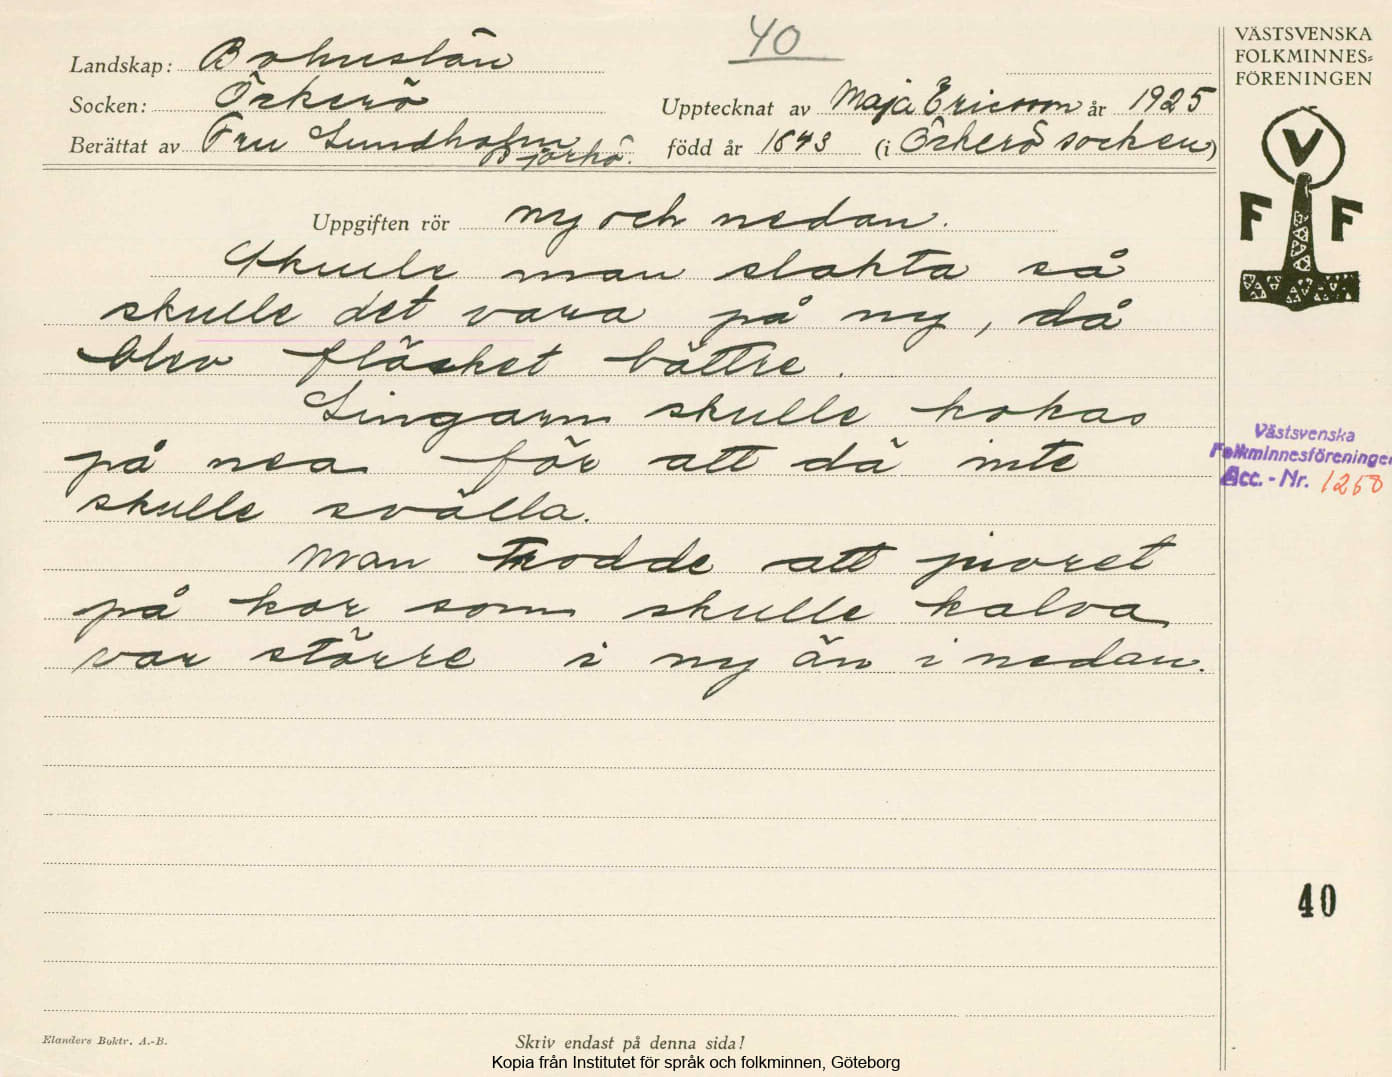 40
VÄSTSVENSKA
FOLKMINNES=
FÖRENINGEN
Landskap: Bohuslän
Socken: Öckerö
Upptecknat av Maja Ericson år 1925
Berättat av Fru Lundholm Björkö.
född år 1843 (i Öckerö socken)
V
F F
Uppgiften rör ny och nedan.
Skulle man slakta så
skulle det vara på ny, då
blev fläsket bättre.
Lingarn skulle kokas
på nea för att då inte
skulle svälla.
Man trodde att juvret
på kor som skulle kalva
var större i ny än i nedan.
Västsvenska
Folkminnesföreningen
Acc. - Nr. 1268
40
Elanders Boktr. A.-B.
Skriv endast på denna sida!
Kopia från Institutet för språk och folkminnen, Göteborg